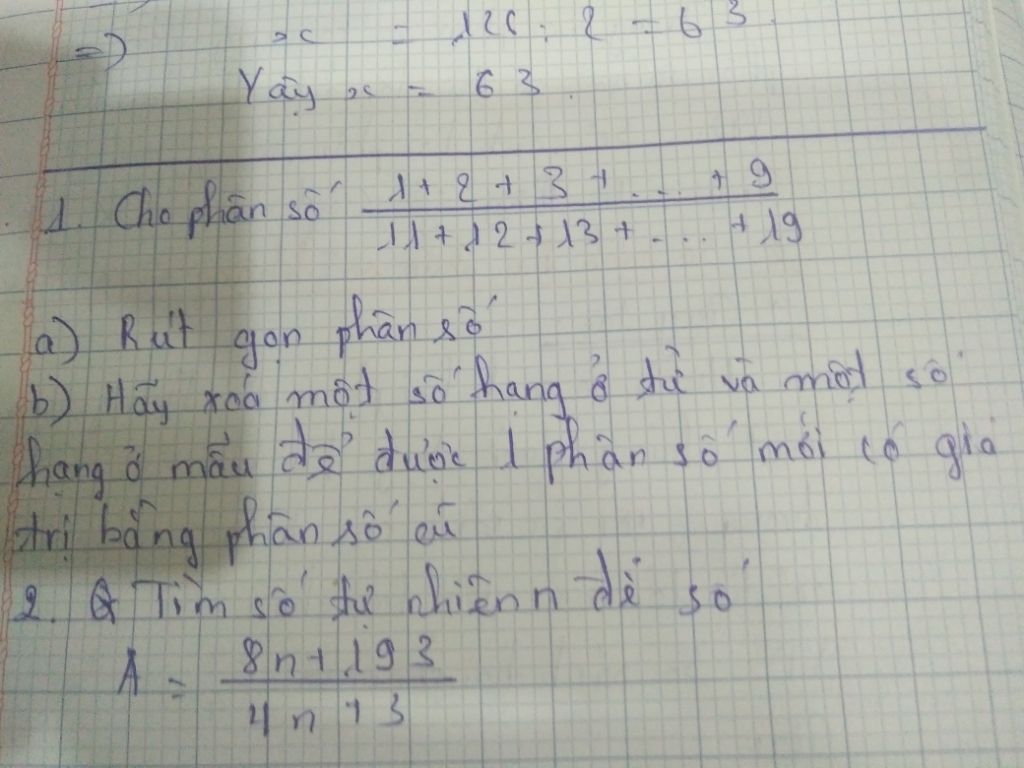 =) x = 126 : 2 = 63
Vậy x = 63.
1. Cho phân số \frac{1+2+3+...+9}{11+12+13+...+19}
a) Rút gọn phân số
b) Hãy xoá một số hạng ở tử và một số
hạng ở mẫu để được 1 phân số mới có giá
trị bằng phân số cũ
2. Tìm số tự nhiên n để số
A = \frac{8n+193}{4n+3}